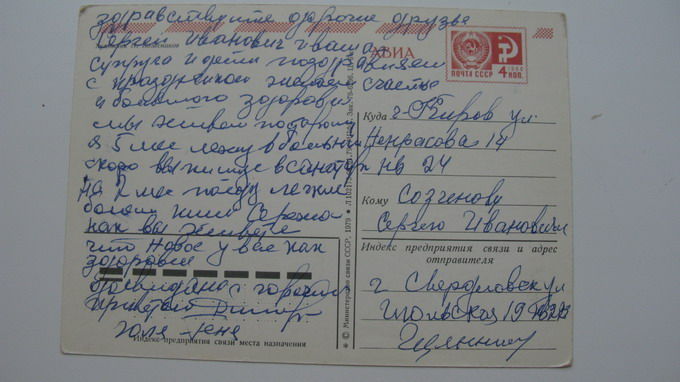 здравствуйте дорогие друзья
Сергей Иванович и ваша
супруга и дети поздравляем
с праздником желаем счастье
и большого здоровья
мы живем
я 5 мес лежу в больни
скоро выпишу в санатор
на 2 мес поеду
пиши Сережа
как вы живете
что новое у вас как
здоровье
досвидания с горячим
приветом
Юля Женя
АВИА
ПОЧТА СССР
1966
4 коп.
Куда г. Киров ул
Некрасова 14
кв 24
Кому Созченову
Сергею Ивановичу
Индекс предприятия связи и адрес
отправителя
г Свердловск ул
19
Индекс предприятия связи места назначения
© Министерство связи СССР, 1979